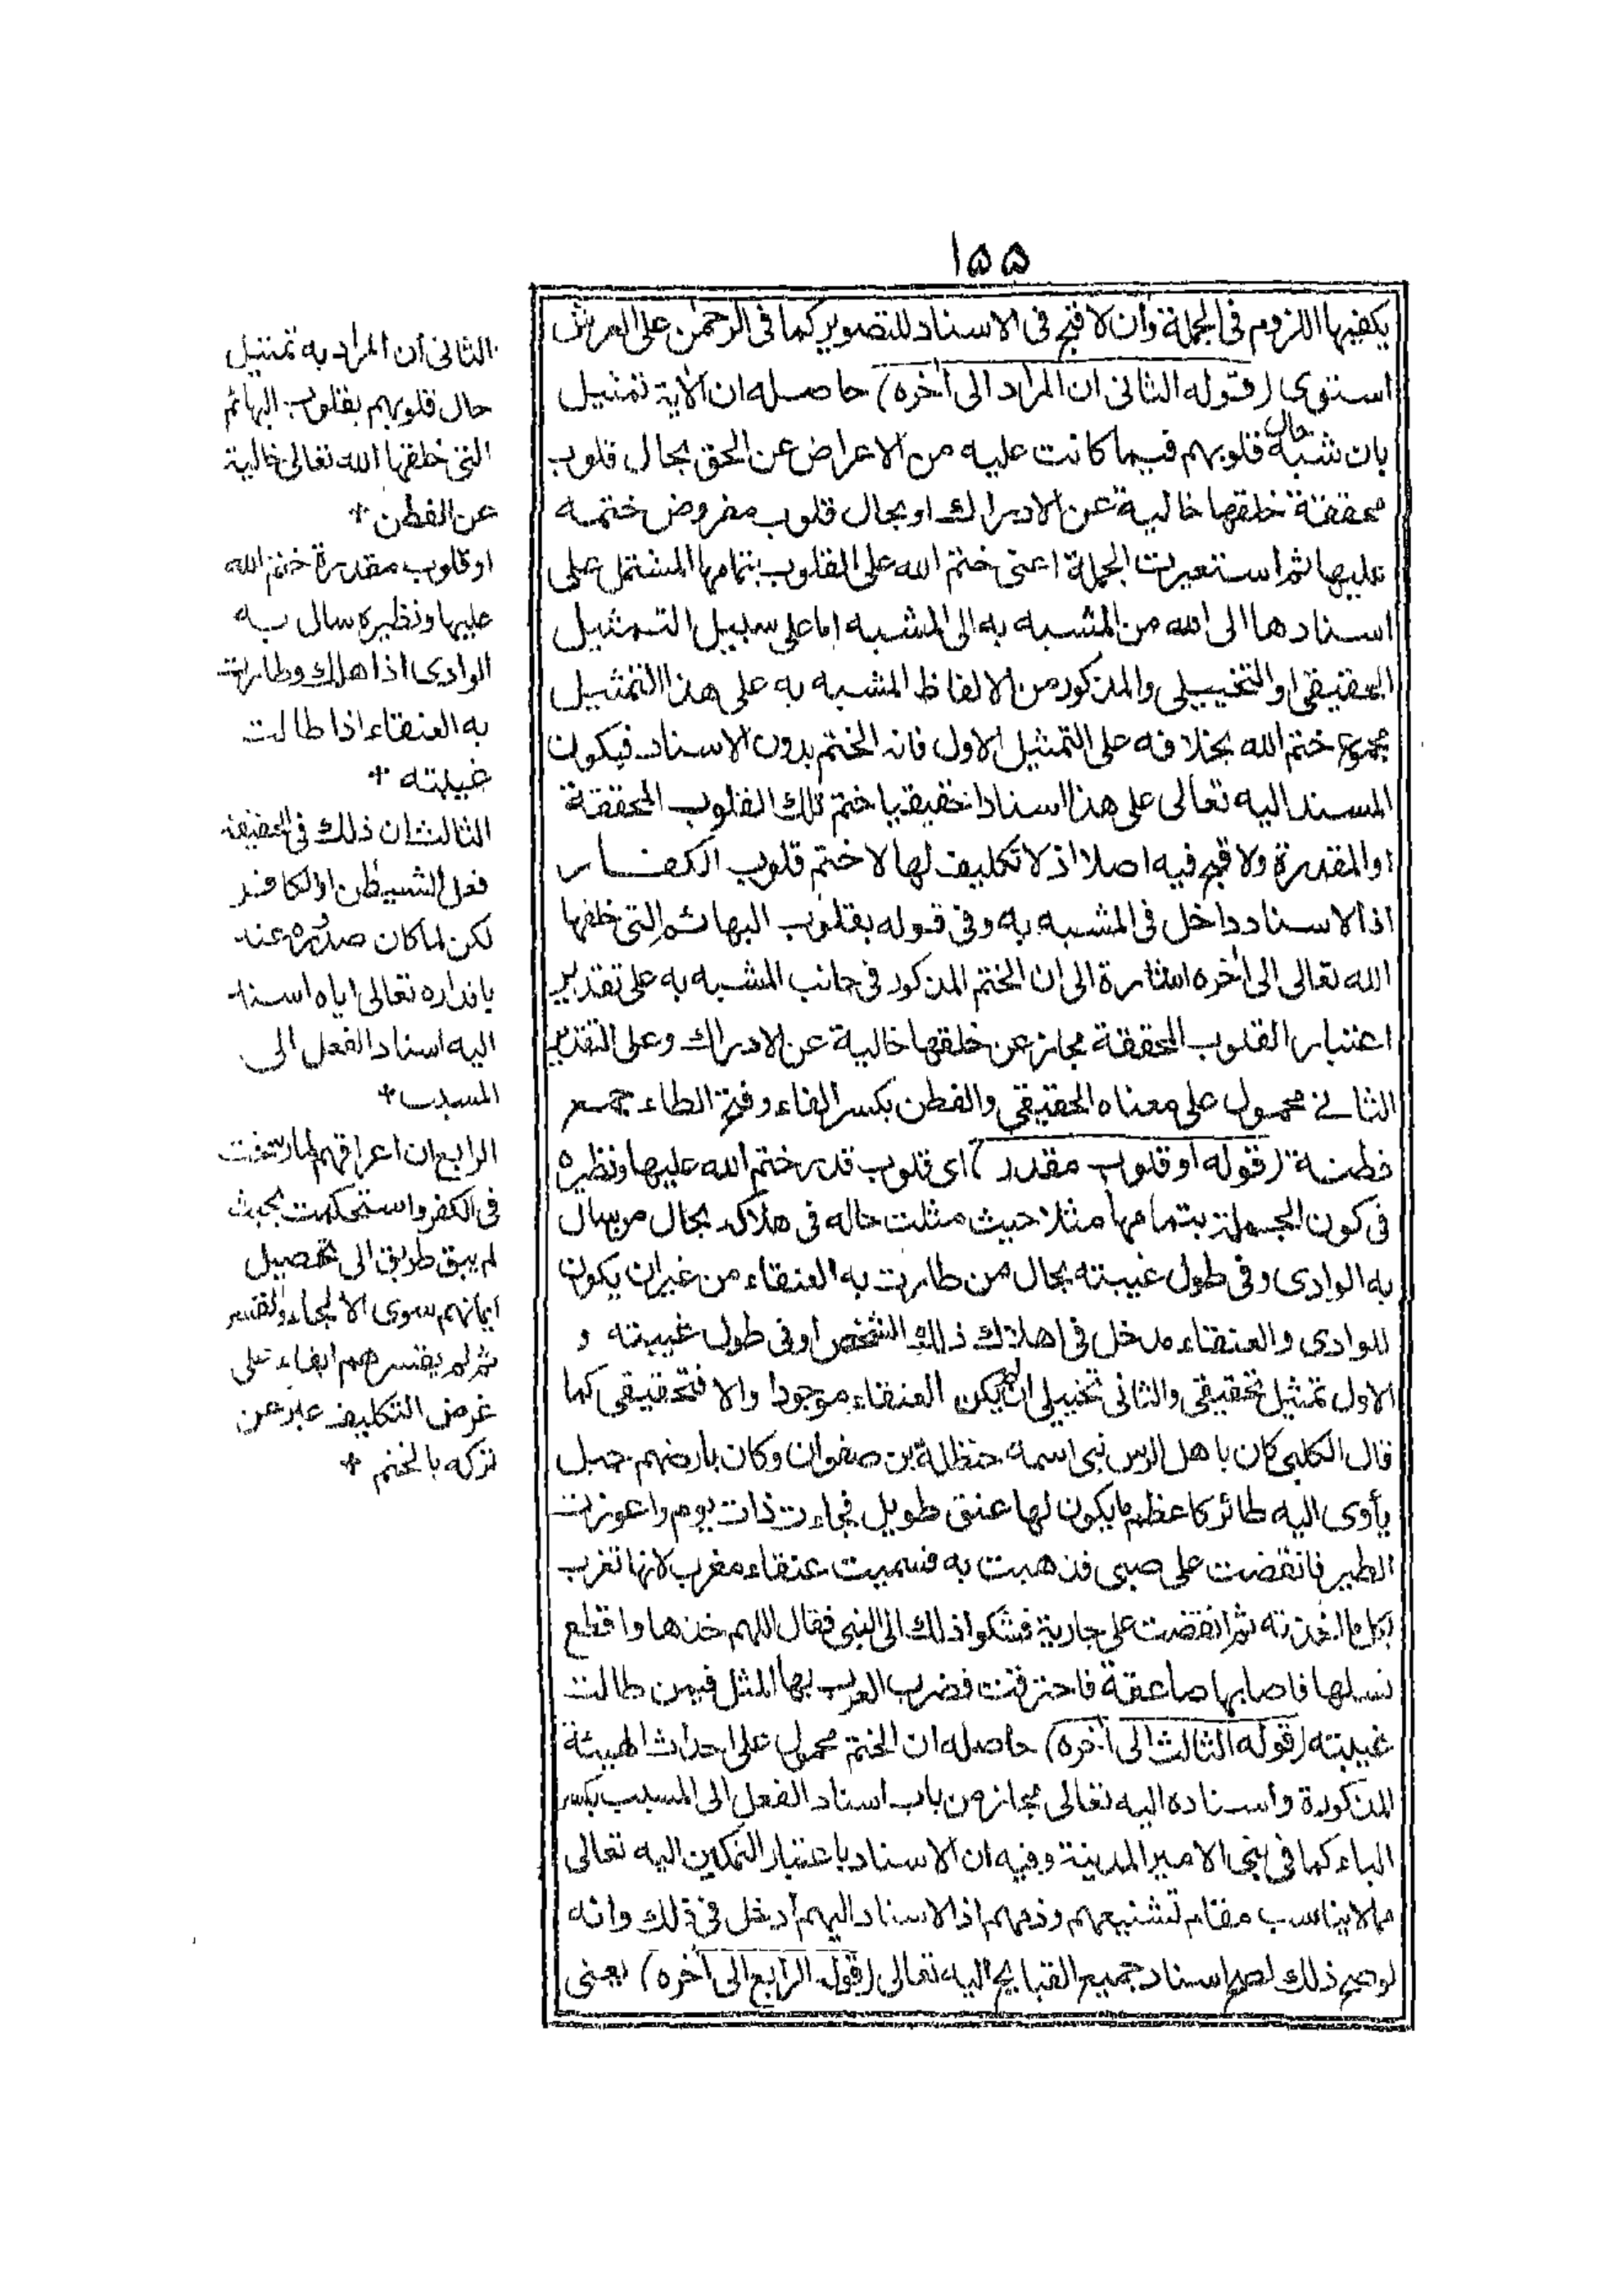 ١٥٥
يكفيها اللزوم فى الجملة وأن لا قبح فى الاسناد للتصوير كما فى الرحمٰن على العرش
استوى (قوله الثانى ان المراد الى أخره) حاصله ان الأية تمثيل
بان شبه حال قلوبهم فيما كانت عليه من الاعراض عن الحق بحال قلوب
محققة خلقها خالية عن الادراك او بحال قلوب مفروض ختمه
عليها ثم استعيرت الجملة اعنى ختم الله على القلوب بتمامها المشتمل على
اسنادها الى الله من المشبه به الى المشبه اما على سبيل التمثيل
الحقيقى او التخييلى والمذكور من الالفاظ المشبه به على هذا التمثيل
مجموع ختم الله بخلافه على التمثيل الاول فانه الختم بدون الاسناد فيكون
المسند اليه تعالى على هذا اسنادا حقيقيا ختم تلك القلوب المحققة
او المقدرة ولا قبح فيه اصلا اذ لا تكليف لها لا ختم قلوب الكفار
اذ الاسناد داخل فى المشبه به وفى قوله بقلوب البهائم التى خلقها
الله تعالى الى أخره اشارة الى ان الختم المذكور فى جانب المشبه به على تقدير
اعتبار القلوب المحققة مجاز عن خلقها خالية عن الادراك وعلى التقدير
الثانى محمول على معناه الحقيقى والفطن بكسر الفاء وفتح الطاء جمع
فطنة (قوله او قلوب مقدر) اى قلوب قدر ختم الله عليها ونظيره
فى كون الجملة بتمامها مثلا حيث مثلت حاله فى هلاكه بحال من سال
به الوادى وفى طول غيبته بحال من طارت به العنقاء من غير ان يكون
للوادى والعنقاء مدخل فى اهلاك ذلك الشخص او فى طول غيبته و
الاول تمثيل تحقيقى والثانى تخييلى ان لم يكن العنقاء موجودا والا فتحقيقى كما
قال الكلبى كان باهل الرس نبى اسمه حنظلة بن صفوان وكان بارضهم جبل
يأوى اليه طائر كاعظم ما يكون لها عنق طويل فجاءت ذات يوم واعوزت
الطير فانقضت على صبى فذهبت به فسميت عنقاء مغرب لانها تغرب
بكل ما اخذته ثم انقضت على جارية فشكوا ذلك الى النبى فقال اللهم خذها واقطع
نسلها فاصابها صاعقة فاحترقت فضرب العرب بها المثل فيمن طالت
غيبته (قوله الثالث الى أخره) حاصله ان الختم محمول على احداث الهيئة
المذكورة واسناده اليه تعالى مجاز من باب اسناد الفعل الى المسبب بكسر
الباء كما فى بنى الامير المدينة وفيه ان الاسناد باعتبار التمكين اليه تعالى
مما لا يناسب مقام تشنيعهم وذمهم اذ الاسناد اليهم أدخل فى ذلك وانه
لو صح ذلك لصح اسناد جميع القبايح اليه تعالى (قوله الرابع الى أخره) يعنى
الثانى أن المراد به تمثيل
حال قلوبهم بقلوب البهائم
التى خلقها الله تعالى خالية
عن الفطن +
او قلوب مقدرة ختم الله
عليها ونظيره سال به
الوادى اذا هلك وطارت
به العنقاء اذا طالت
غيبته +
الثالث ان ذلك فى الحقيقة
فعل الشيطٰن او الكافر
لكن لما كان صدوره عنه
باقداره تعالى اياه اسند
اليه اسناد الفعل الى
المسبب +
الرابع ان اعراقهم لما رسخت
فى الكفر واستحكمت بحيث
لم يبق طريق الى تحصيل
ايمانهم سوى الالجاء والقسر
ثم لم يقسرهم ابقاء على
غرض التكليف عبر عن
تركه بالختم +